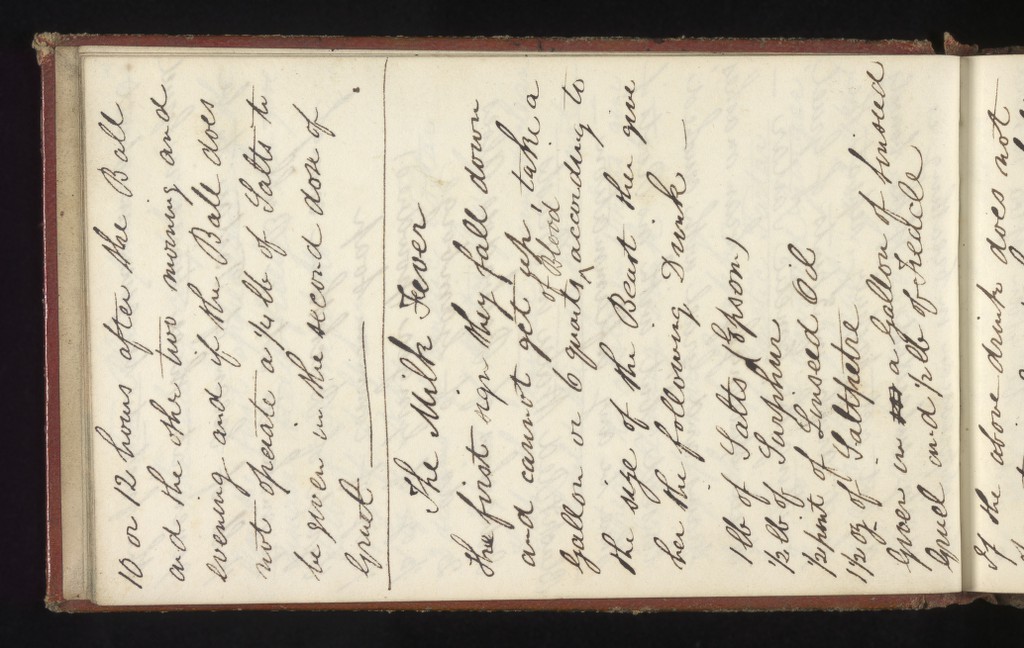 10 or 12 hours after the Ball
and the othr two morning and
evening and if the Ball does
not opperate a 1/4 lb of Salts to
be given in the second dose of
Gruet.
The Milk Fever
The first sign they fall down
and cannot get up take a
of Blood
Gallon or 6 quarts ^ according to
the size of the Beast then give
her the following Drink
1 lb of Salts (Epsom)
1/2 lb of Surphur
1/2 pint of Linseed Oil
1 1/2 oz of Saltpetre
Given in a Gallon of linseed
Gruel and 1/2 lb of Treacle
If the above drink does not